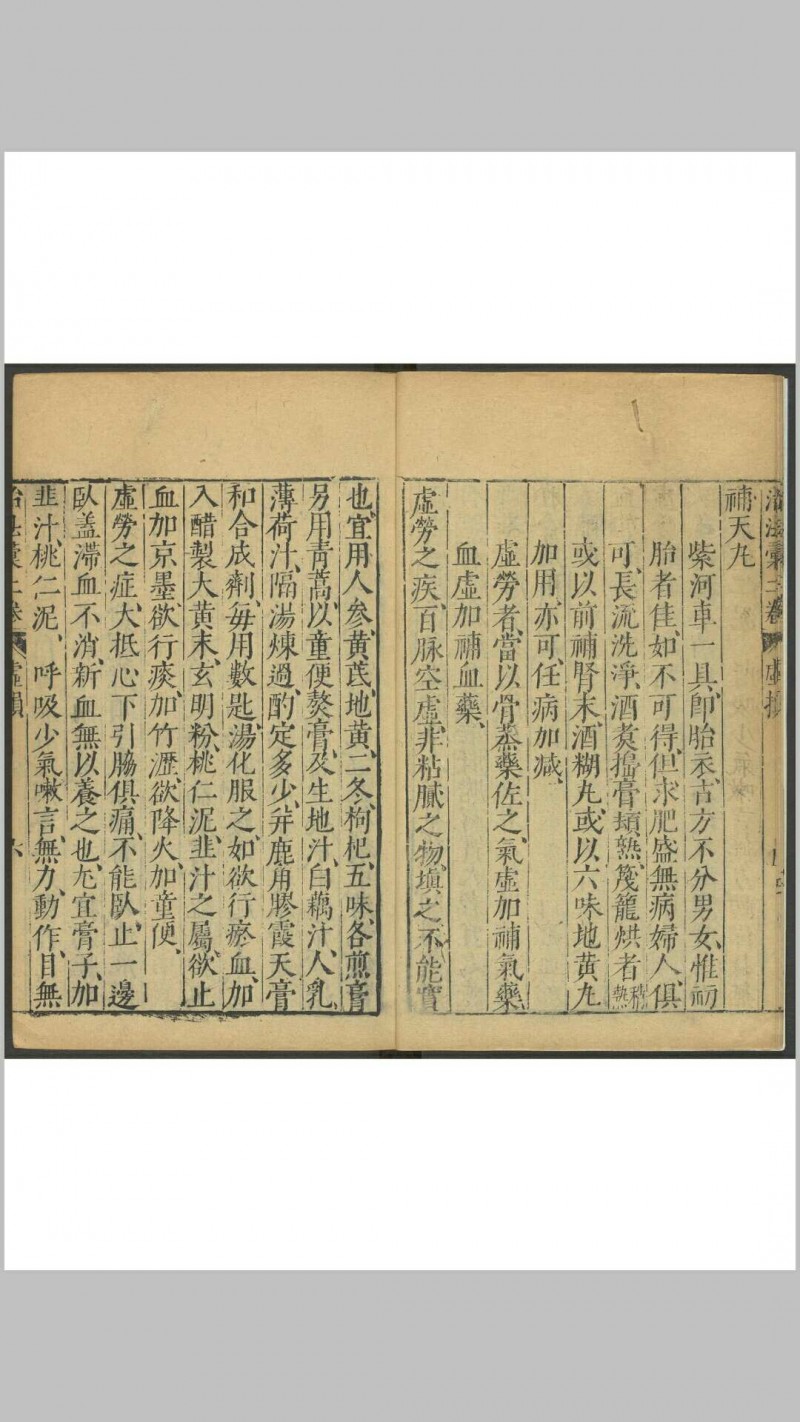 治法彙二卷 虛損
補天丸
紫河車一具、卽胎衣、古方不分男女、惟初
胎者佳、如不可得、但求肥盛無病婦人、俱
可、長流洗淨、酒煑擣膏頻熟、篾籠烘者稍熱
或以前補腎末酒糊丸、或以六味地黃丸
加用亦可、任病加減、
虛勞者、當以骨蒸藥佐之、氣虛加補氣藥
血虛加補血藥、
虛勞之疾、百脉空虛、非粘膩之物塡之、不能實
也、宜用人參、黃芪、地黃、二冬、枸杞、五味、各煎膏
另用青蒿、以童便熬膏、及生地汁、白藕汁、人乳、
薄荷汁、隔湯煉過、酌定多少、幷鹿角膠霞天膏
和合成劑、每用數匙、湯化服之、如欲行瘀血、加
入醋製大黃末、玄明粉、桃仁泥、韭汁之屬、欲止
血加京墨、欲行痰、加竹瀝、欲降火加童便、
虛勞之症、大抵心下引脇俱痛、不能臥、止一邊
臥、盖滯血不消、新血無以養之也、尤宜膏子、加
韭汁、桃仁泥、 呼吸少氣、嗽言、無力、動作、目無
治法彙二卷 虛損 六